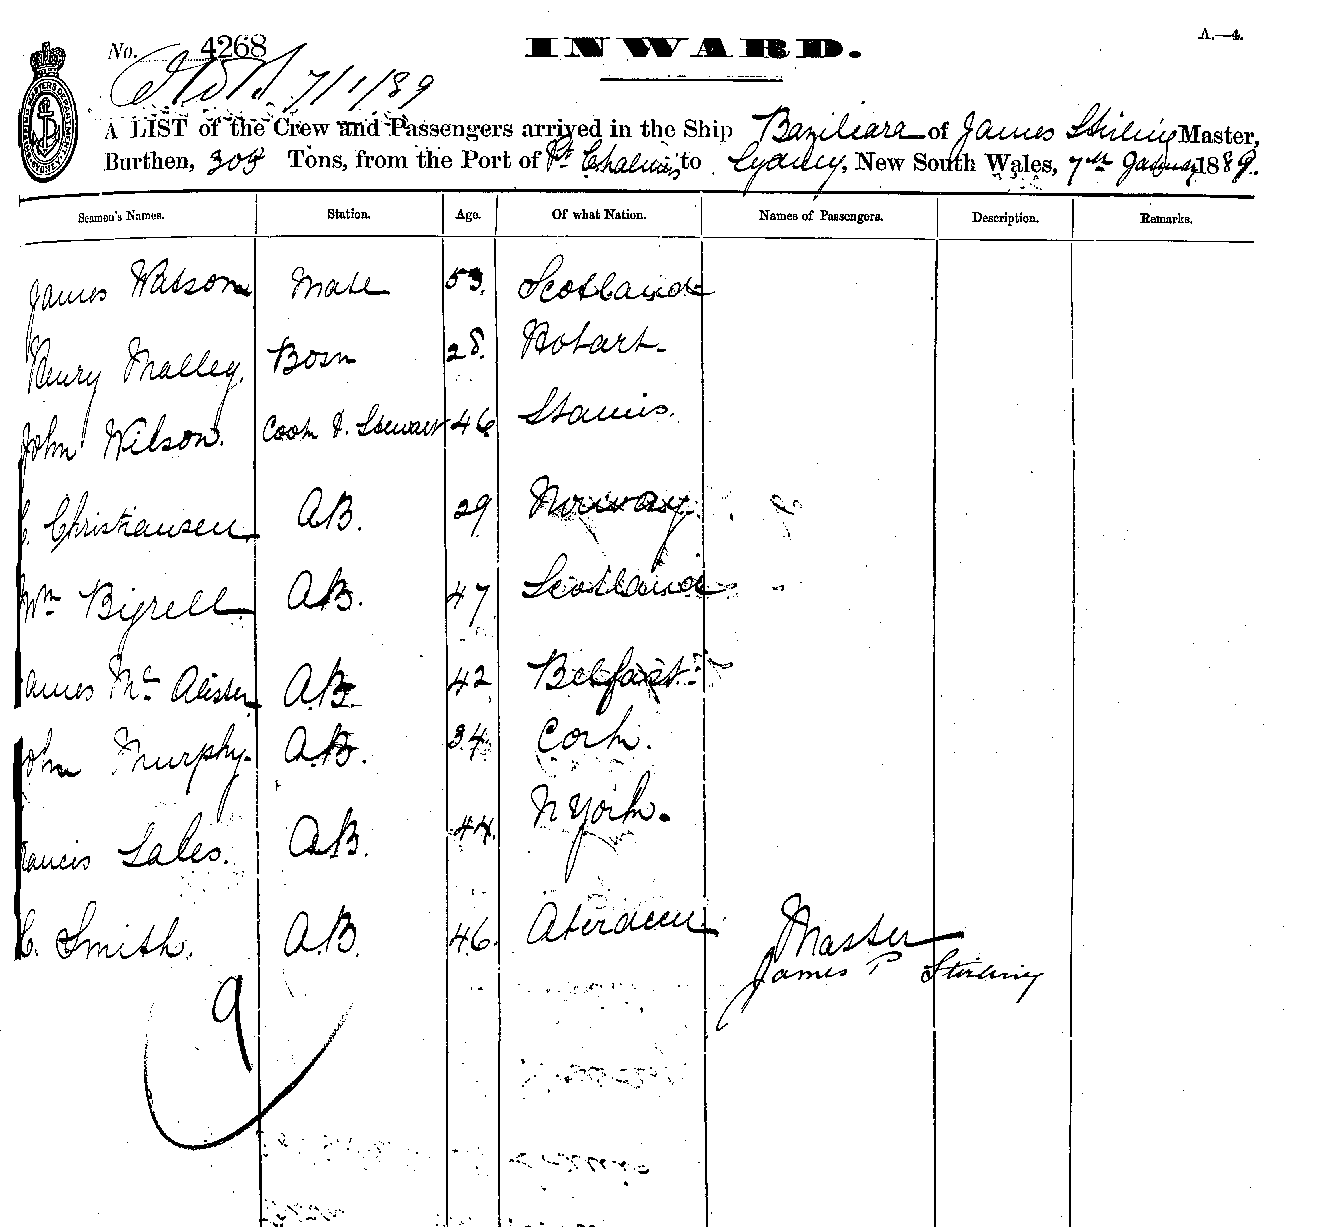 No. 4268
INWARD.
A.—4.
7/1/89
A LIST of the Crew and Passengers arrived in the Ship Baziliara of James Stirling Master,
Burthen, 308 Tons, from the Port of Pt Chalmers to Sydney, New South Wales, 7th January 1889.
Seamen's Names. Station. Age. Of what Nation. Names of Passengers. Description. Remarks.
James Watson Mate 53. Scotland
Henry Malley. Bosn 28. Hobart.
John Wilson. Cook & Steward 46
C. Christiansen A.B. 29 Norway.
Wm Birrell A.B. 47 Scotland
James Mc Alister A.B. 42 Belfast.
John Murphy. A.B. 34 Cork.
Francis Sales. A.B. 44. N York.
C. Smith. A.B. 46. Aberdeen
Master
James P Stirling
9